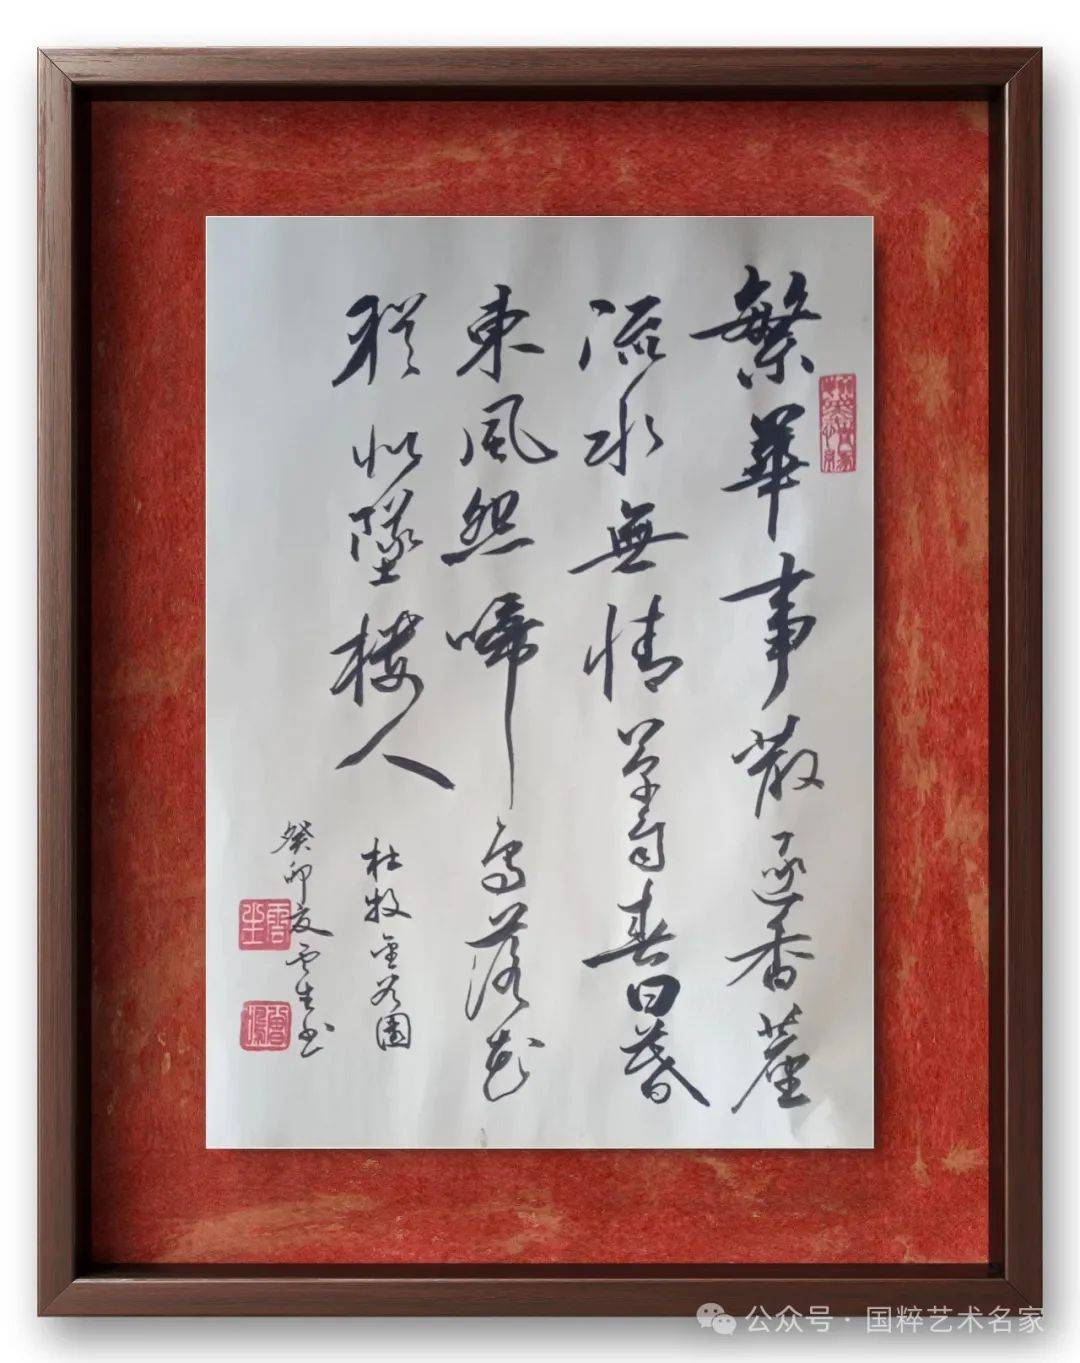 繁華事散逐香塵
流水無情草自春日暮
東風怨啼鳥落花
猶似墜樓人
杜牧金谷園
癸卯夏云生书
雲生
公众号 · 国粹艺术名家